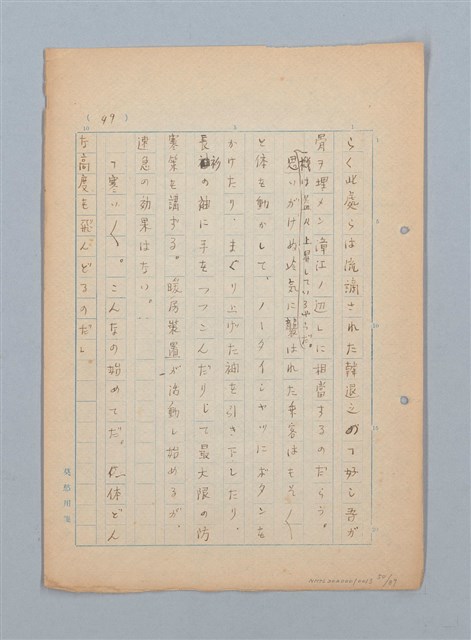 (49)
らく此處らは流謫された韓退之の「好し吾が
骨ヲ埋メン漳江ノ辺」に相當するのだらう。
機はグン〱上昇しているやうだ。
思いがけぬ冷気に襲はれた乗客はもぞ〱
と体を動かして、ノータイシャツにボタンを
かけたり、まくり上げた袖を引き下したり、
長衫の袖に手をつっこんだりして最大限の防
寒策を講ずる。暖房装置が活動し始めるが、
速急の効果はない。
「寒い〱。こんなの始めてだ。一体どん
な高度を飛んどるのだ」。